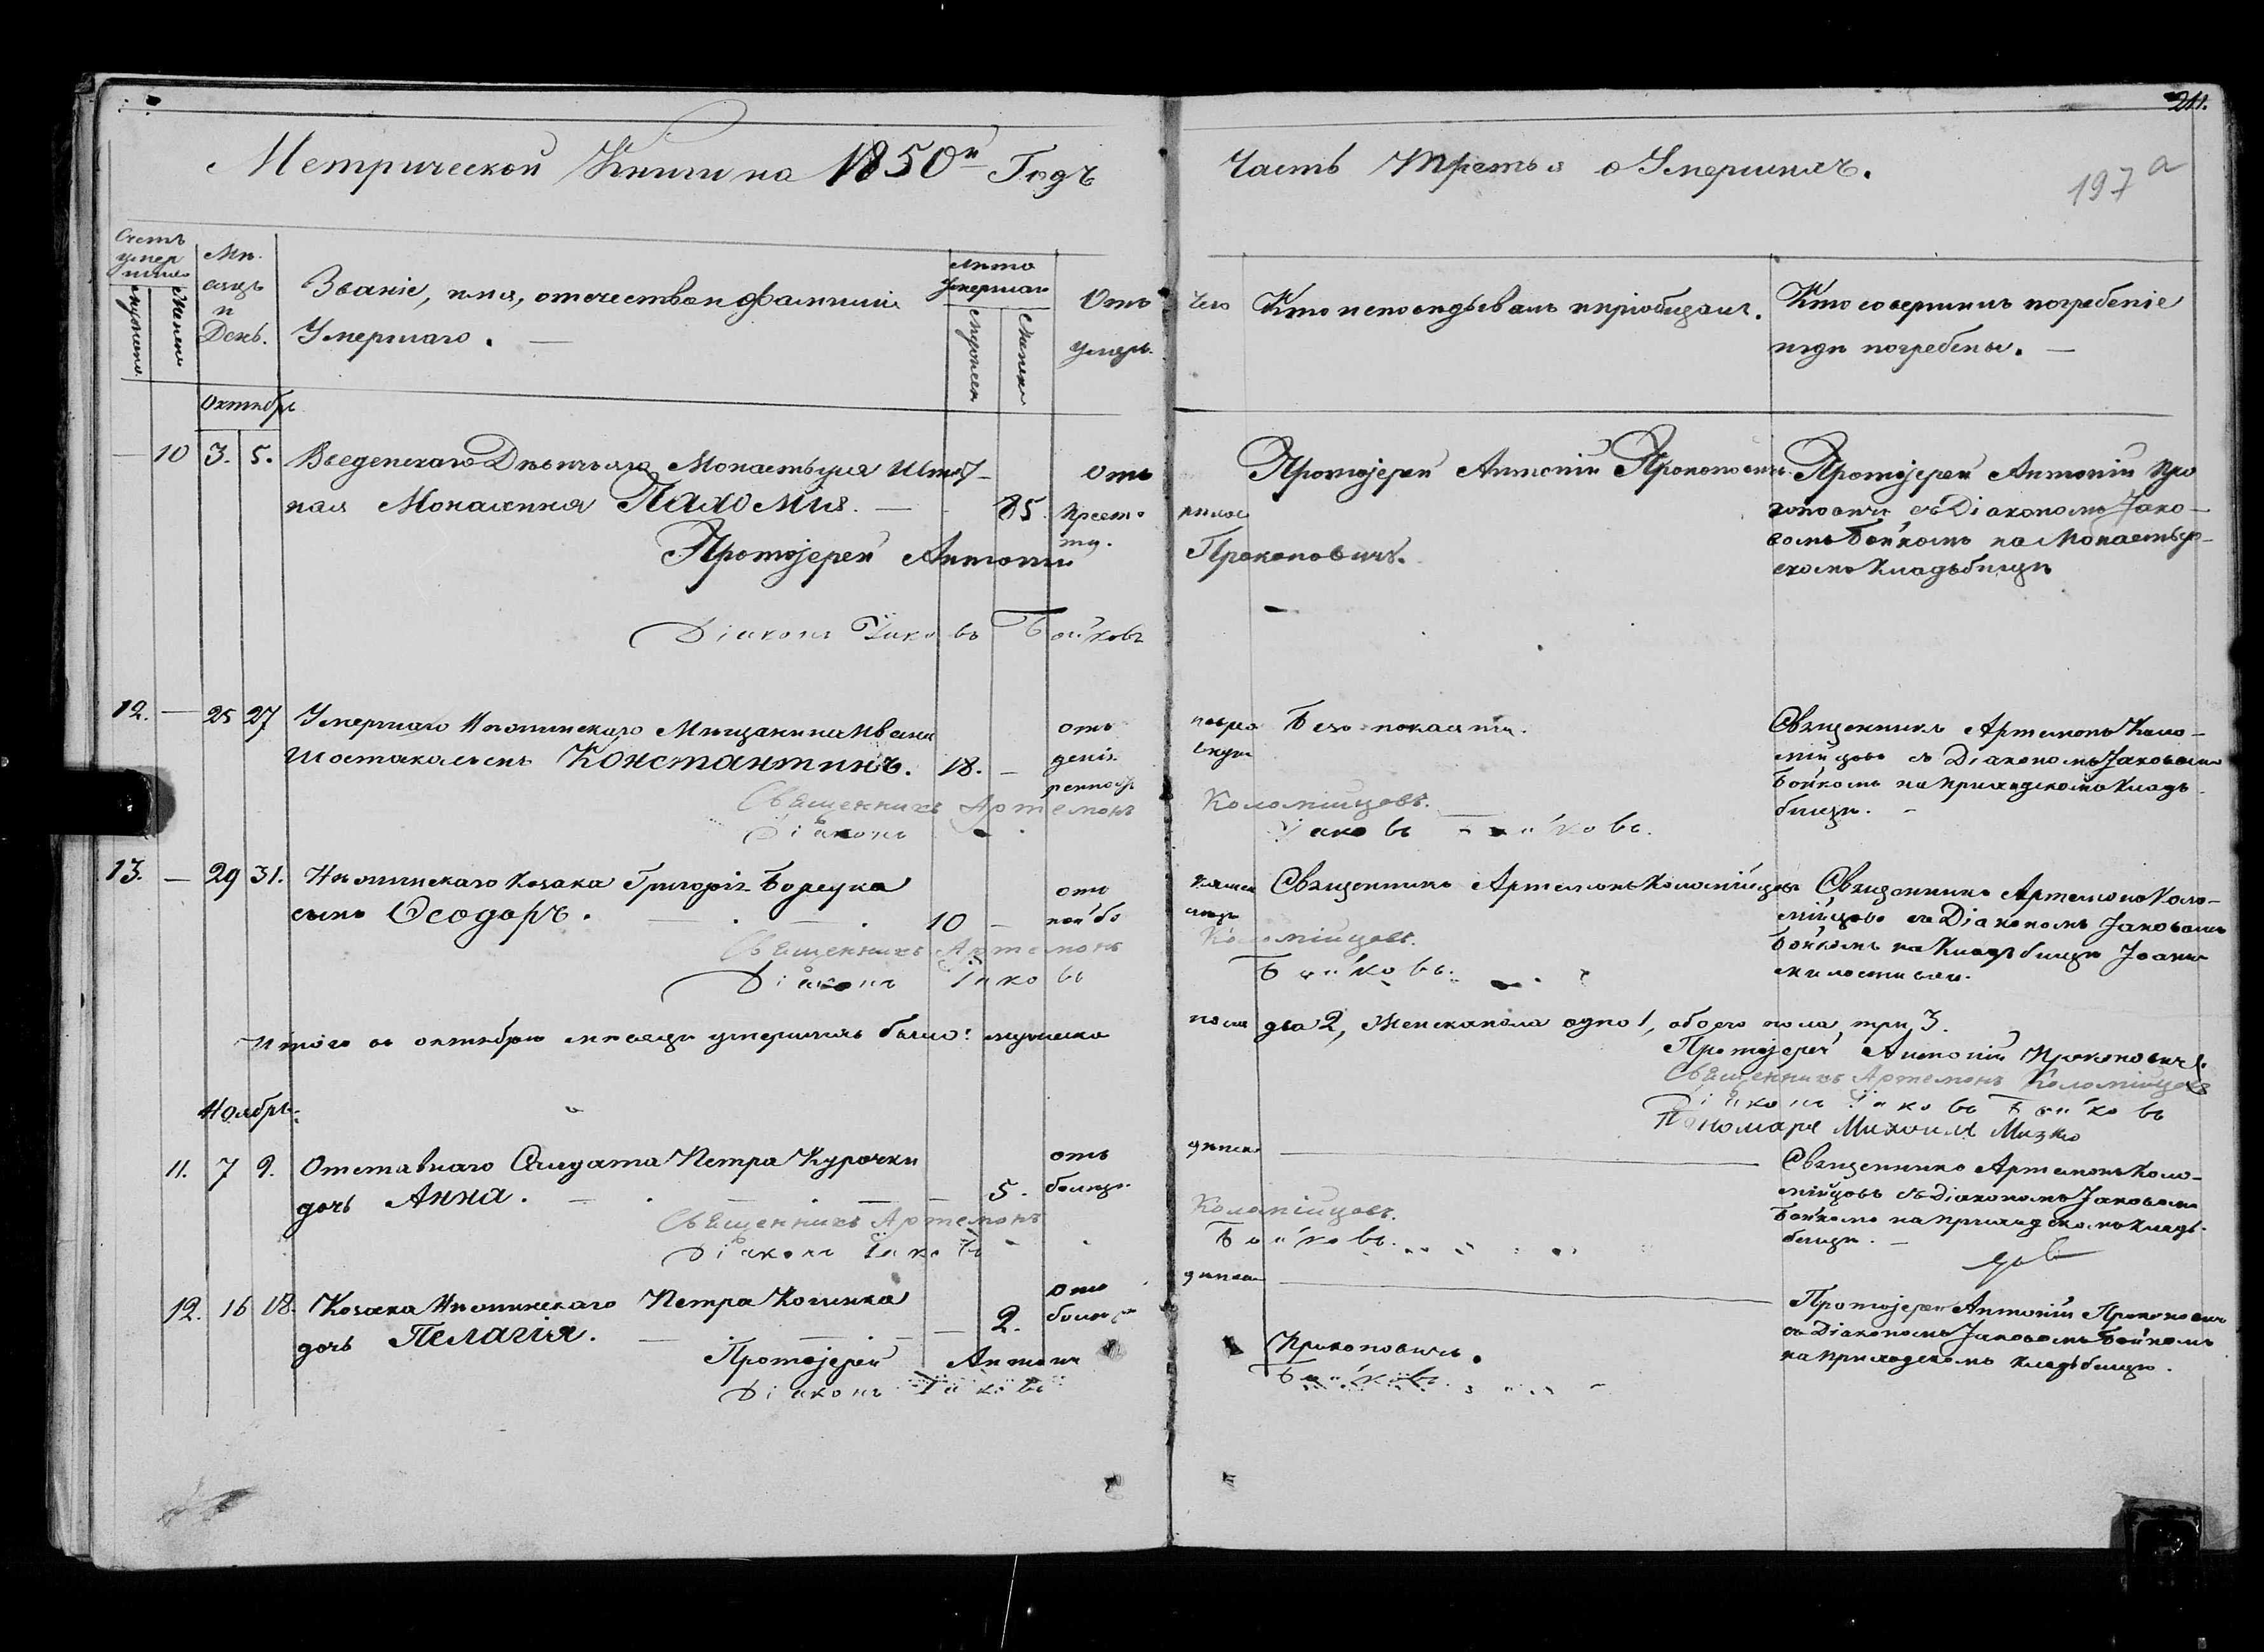 211.
Метрической Книги на 1850й Годъ
Часть Третья о Умершихъ.
197 а
Счетъ умершихъ
Мужеска
Женска
Мѣсяцъ и День.
Званіе, имя, отечество и фамилія
Умершаго. —
Лѣто Умершаго
Мужеска
Женска
Отъ Чего
умеръ.
Кто исповѣдывалъ и пріобщалъ.
Кто совершилъ погребеніе
и гдѣ погребены. —
Октябрь
— 10 3. 5. Введенскаго Дѣвичьяго Монастыря
ная Монахиня Пахомія. — 85.
Отъ
Протоіерей Антоній Прокоповичъ.
Протоіерей Антоній Про
коповичъ съ Діакономъ Іако-
вомъ Бойкомъ на Монастыр-
скомъ Кладбищѣ
Протоіерей Антоній Прокоповичъ.
Діаконъ Іаковъ Бойковъ
12. — 25 27 Умершаго Нѣжинскаго Мѣщанина Ивана
Шостака сынъ Константинъ. 18. —
отъ
Безъ покаянія.
Священникъ Артемонъ Коло-
мійцовъ съ Діакономъ Іаковомъ
Бойкомъ на приходскомъ Клад-
бищѣ. —
Священникъ Артемонъ Коломійцовъ.
Діаконъ Іаковъ Бойковъ.
13. — 29 31. Нѣжинскаго Козака Григорія
сынъ Ѳеодоръ. 10 —
отъ
Священникъ Артемонъ Коломійцовъ
Священникъ Артемонъ Коло-
мійцовъ съ Діакономъ Іаковомъ
Бойкомъ на Кладбищѣ Іоанна
милостиваго.
Священникъ Артемонъ Коломійцовъ.
Діаконъ Іаковъ Бойковъ.
Итого въ октябрѣ мѣсяцѣ умершихъ было: мужеска пола два 2, Женска пола одно 1, обоего пола три 3.
Протоіерей Антоній Прокоповичъ.
Священникъ Артемонъ Коломійцовъ
Діаконъ Іаковъ Бойковъ
Пономарь Михаилъ Мизко
Ноябрь.
11. 7 9. Отставнаго Салдата Петра Курочки
дочь Анна. — 5.
отъ
Священникъ Артемонъ Коло-
мійцовъ съ Діакономъ Іаковомъ
Бойкомъ на приходскомъ Клад-
бищѣ. —
Священникъ Артемонъ Коломійцовъ.
Діаконъ Іаковъ Бойковъ.
12. 16 18. Козака Нѣжинскаго Петра
дочь Пелагія. — 2.
отъ
Протоіерей Антоній Прокоповичъ
съ Діакономъ Іаковомъ Бойкомъ
на приходскомъ Кладбищѣ.
Протоіерей Антоній Прокоповичъ.
Діаконъ Іаковъ Бойковъ.